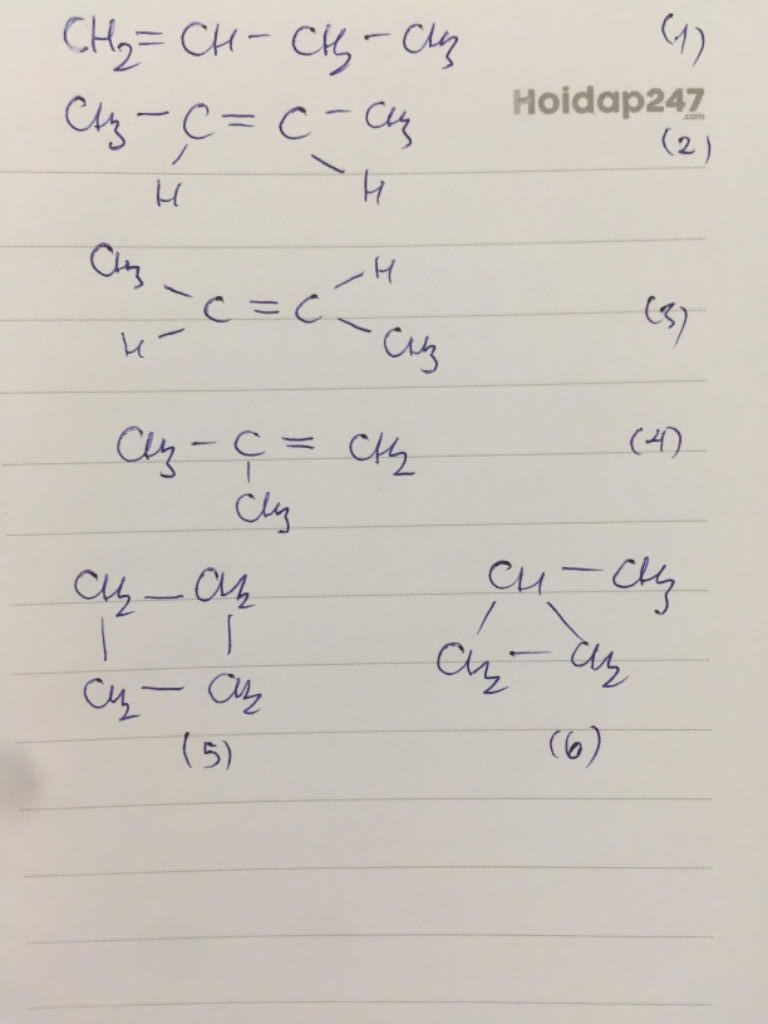 CH2 = CH - CH2 - CH3 (1)
Hoidap247
.com
CH3 - C = C - CH3 (2)
H H
CH3 H
C = C (3)
H CH3
CH3 - C = CH2 (4)
CH3
CH2 - CH2 CH - CH3
CH2 - CH2 CH2 - CH2
(5) (6)